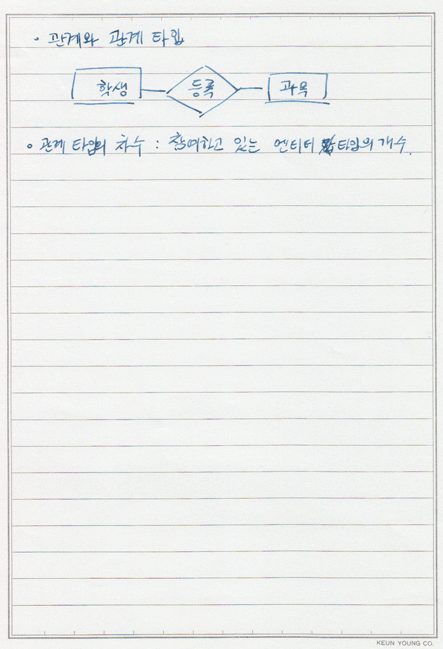 · 관계와 관계 타입
학생 등록 과목
∘ 관계 타입의 차수 : 참여하고 있는 엔티티 타입의 개수.
KEUN YOUNG CO.